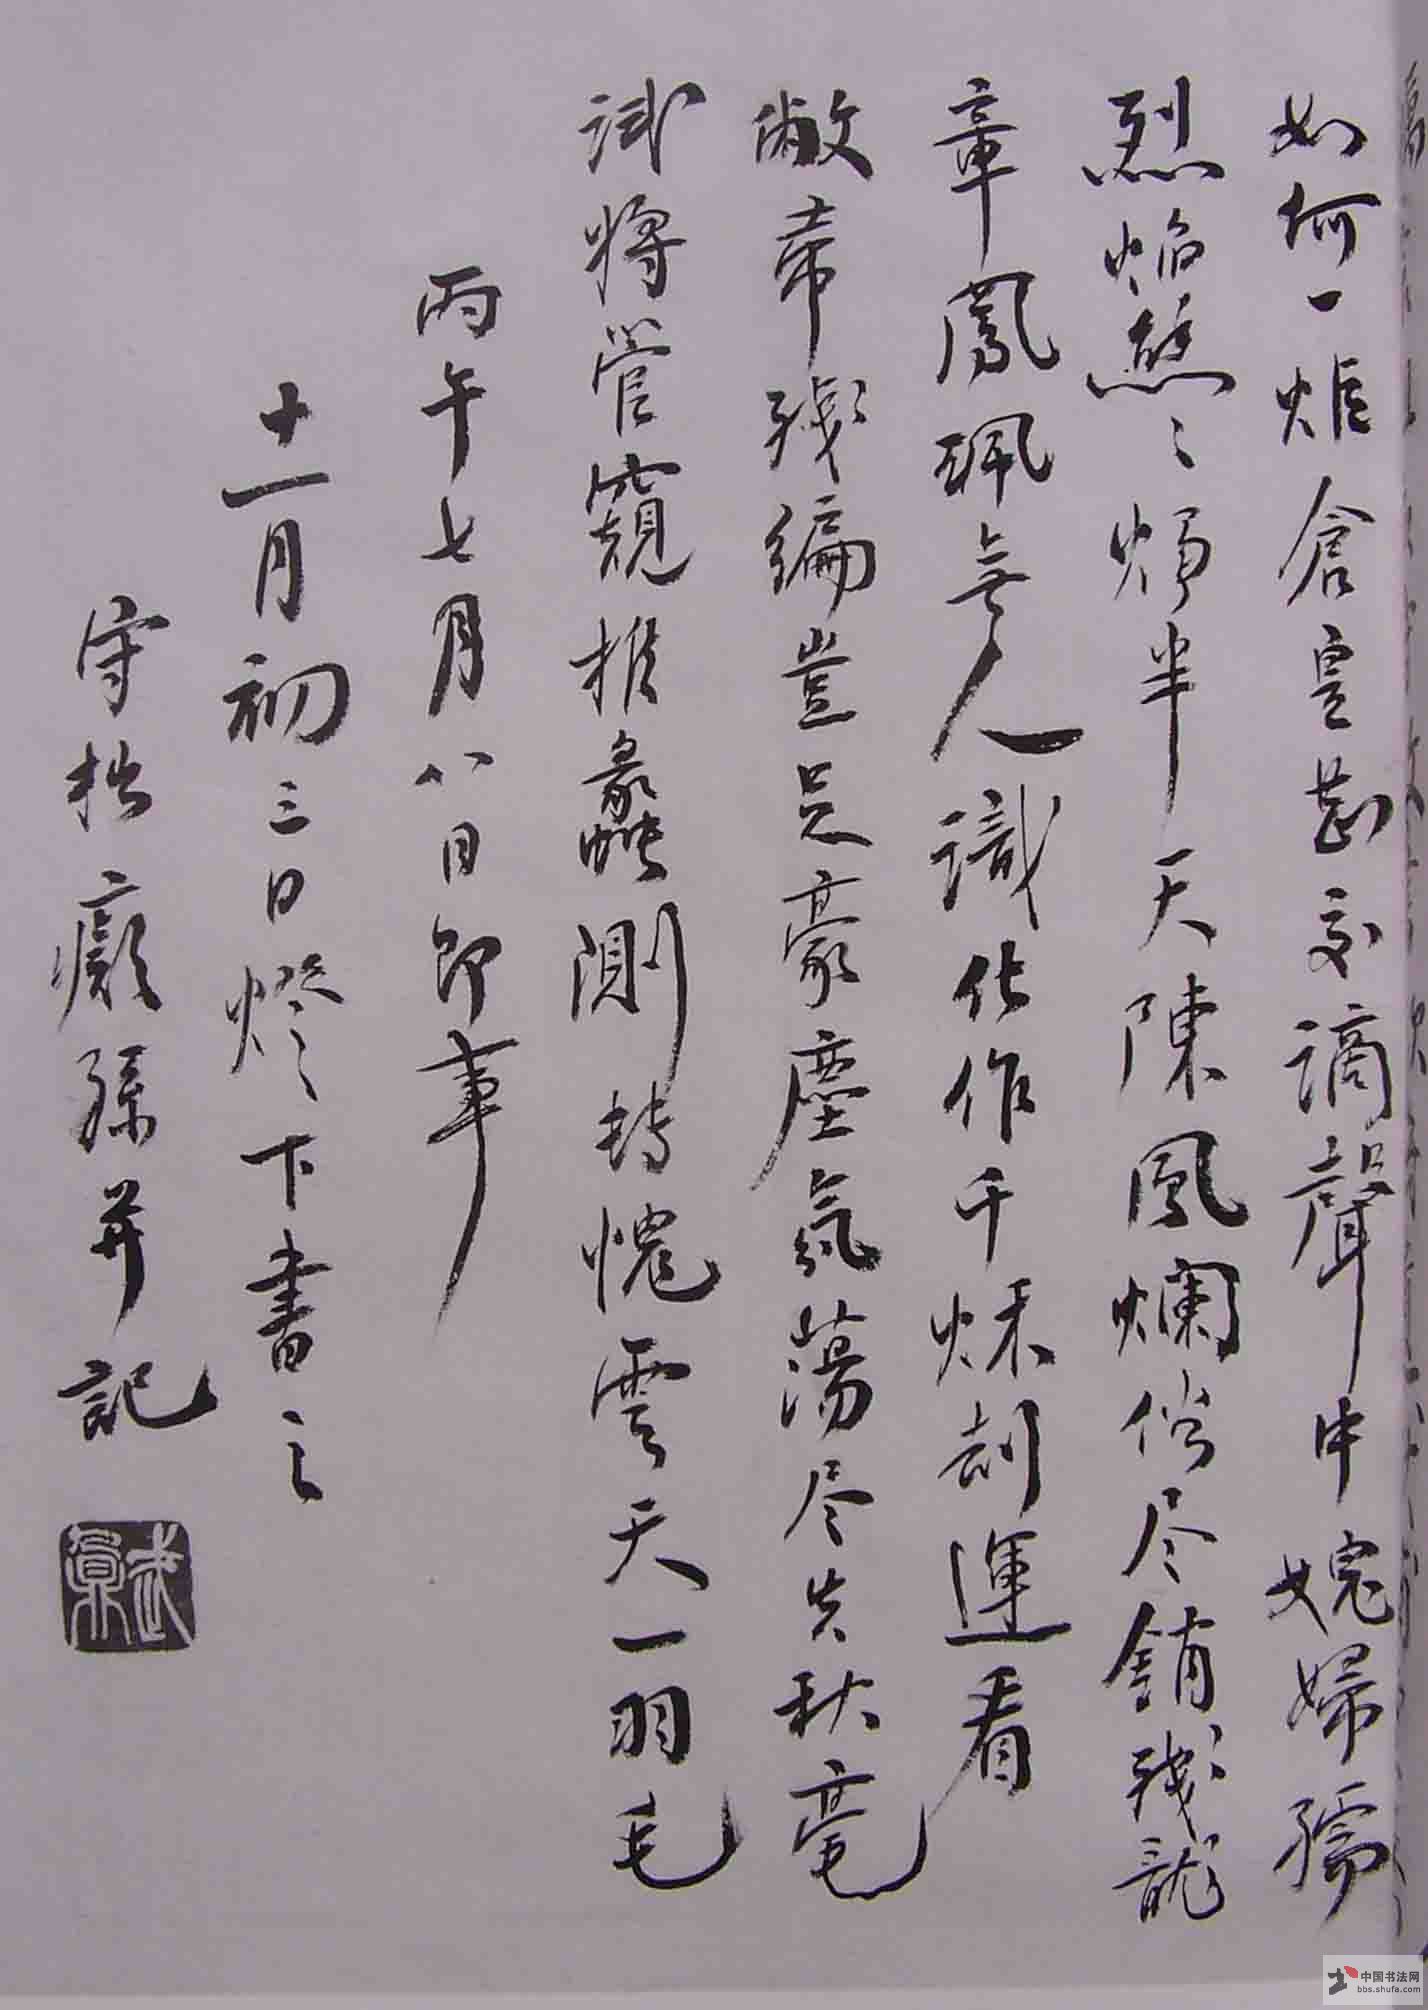 如何一炬倉皇劫交謫聲中娩婦孺
烈焰熊々燭半天陳風爛俗尽銷殘龍
章鳳珮無人識化作千秋劫運看
敝帚殘編豈足豪塵氣蕩尽失秋毫
試將管窺推蠡測持愧雲天一羽毛
丙午七月八日即事
十一月初三日燈下書之
守拙癡孫并記
中国书法网
bbs.shufa.com